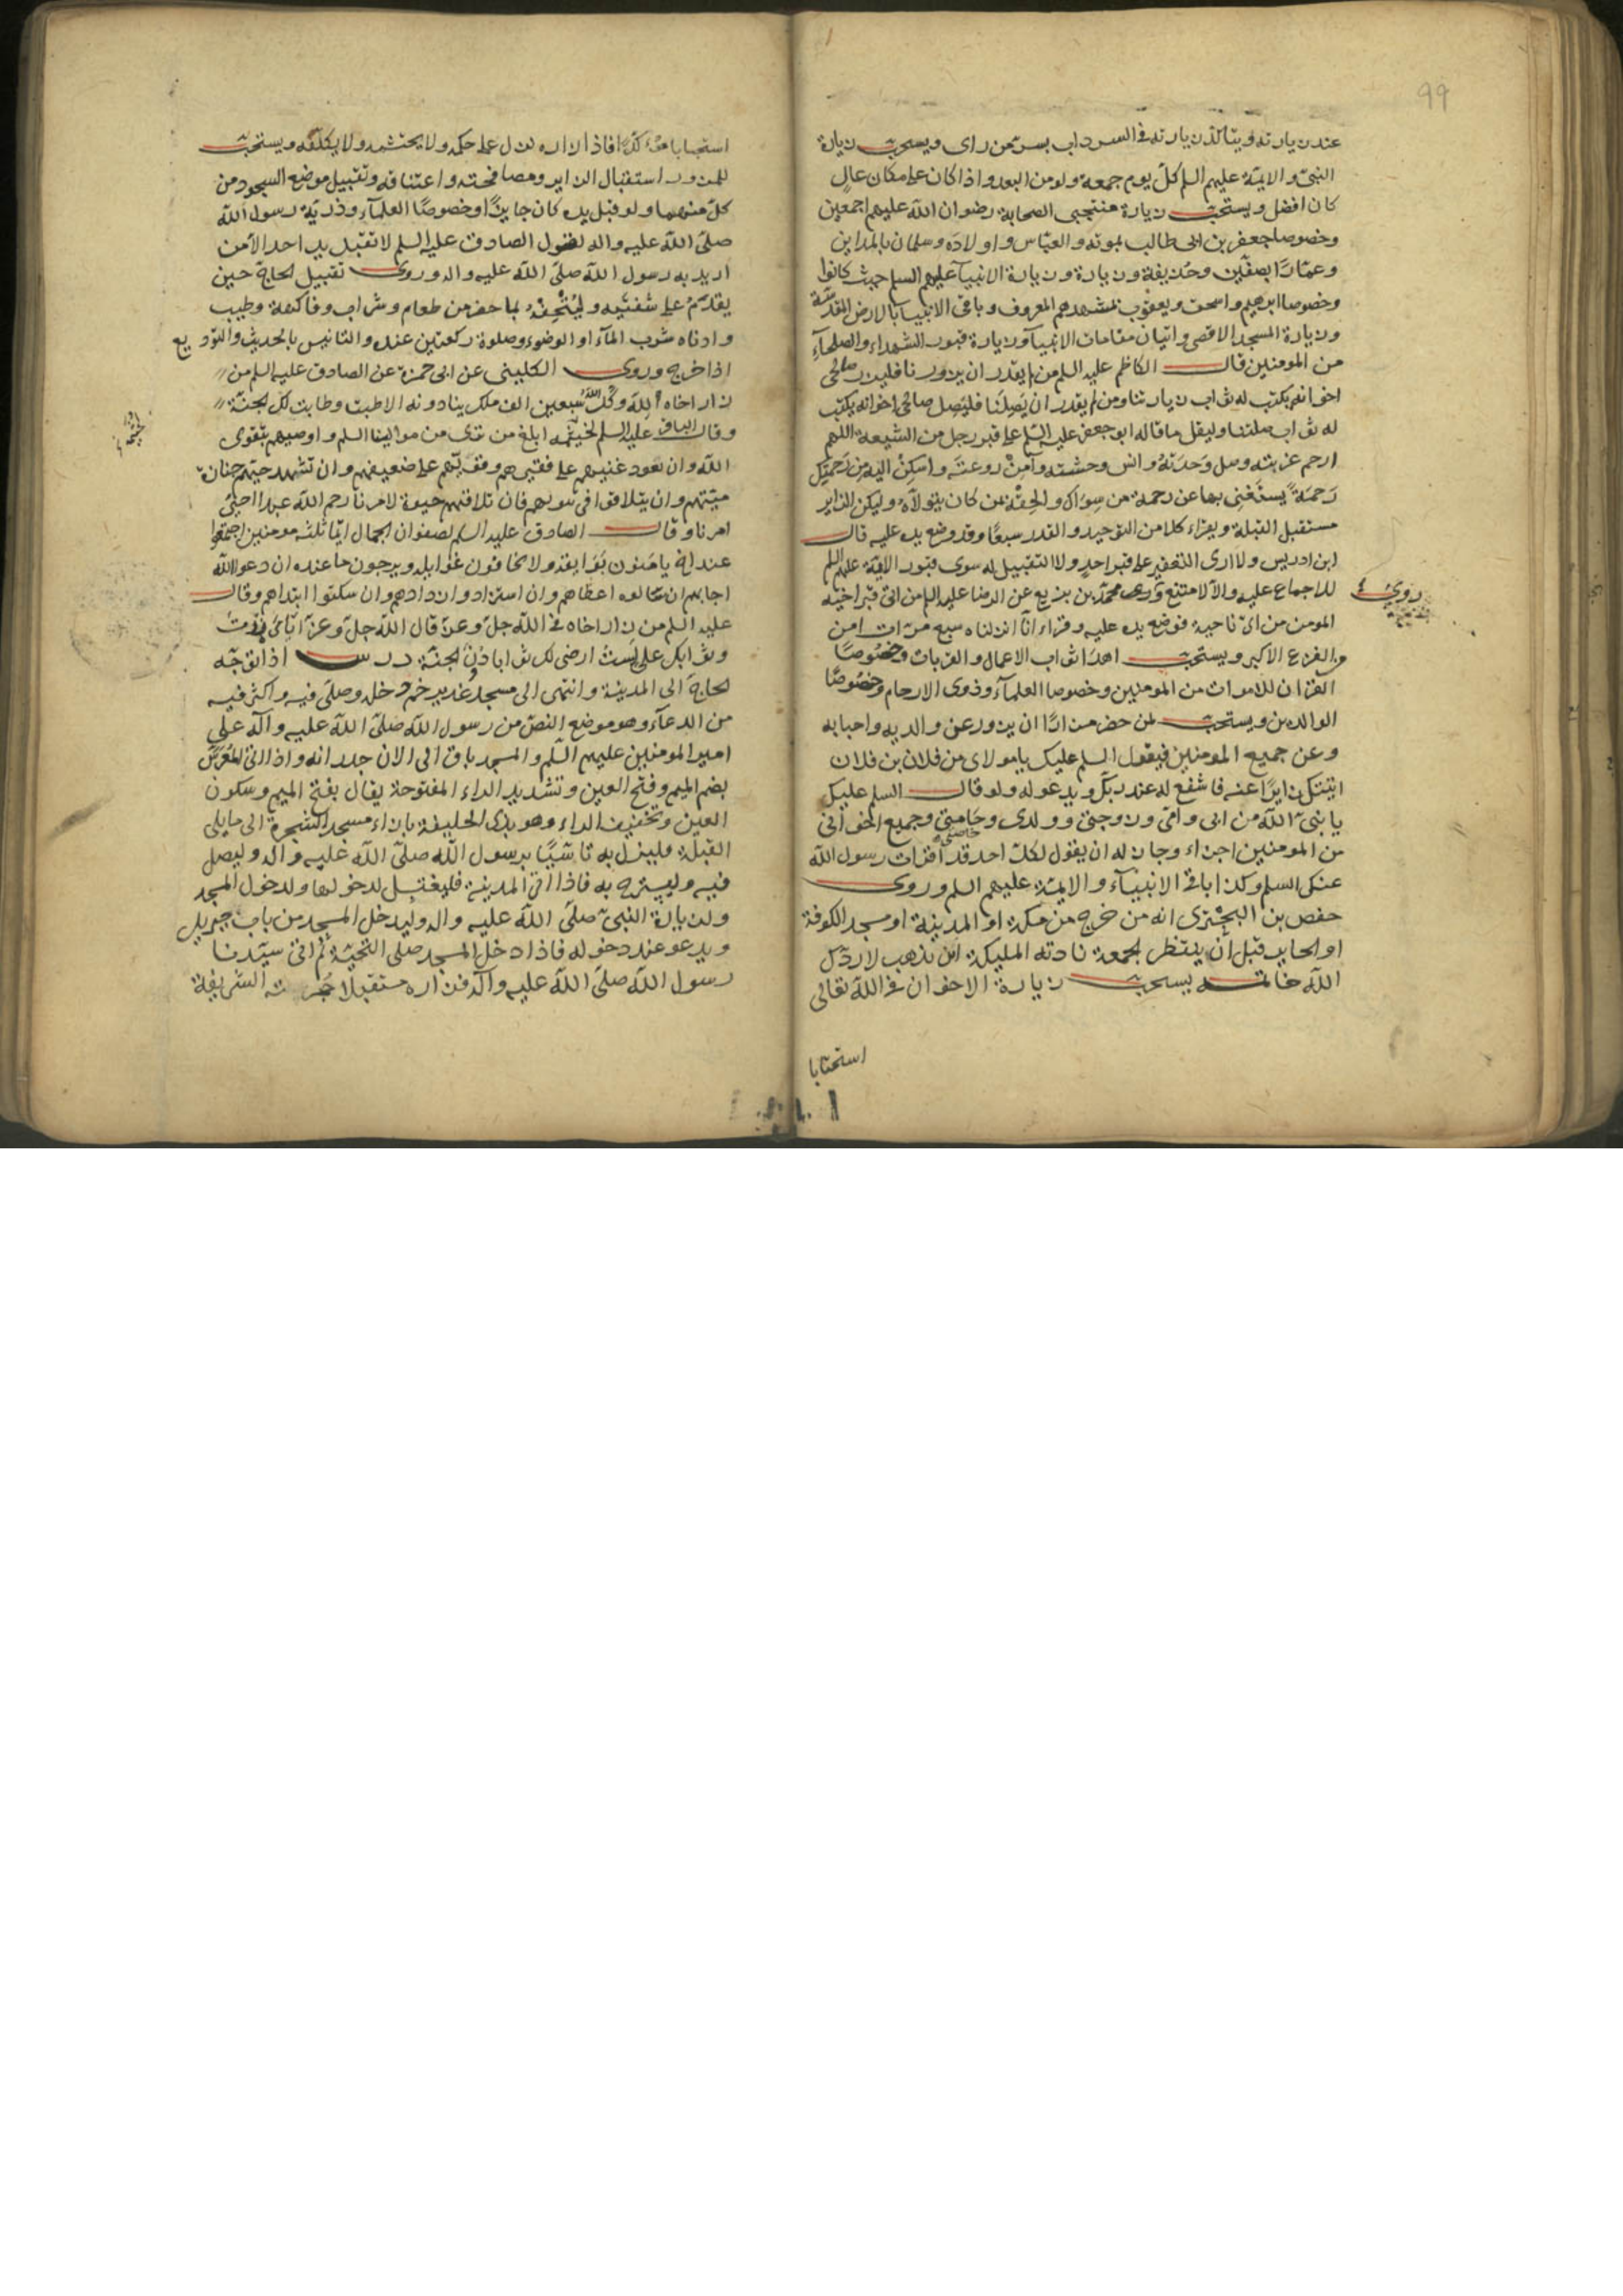 ٩٩
عند زيارته ويتاكد زيارته في السرداب بسر من راى ويستحب زيارة
النبي والايمة عليهم السلم كل يوم جمعة ولو من البعد واذا كان على مكان عال
كان افضل ويستحب زيارة منتجبى الصحابة رضوان الله عليهم اجمعين
وخصوصا جعفر بن ابى طالب بموته والعباس واولاده وسلمان بالمداين
وعمارا بصفين وحذيفة وزيارة وزيارة الانبيآ عليهم السلم حيث كانوا
وخصوصا ابرهيم واسحق ويعقوب بمشهدهم المعروف وباقى الانبيا بالارض المقدسة
وزيارة المسجد الاقصى واتيان مقامات الانبيآ وزيارة قبور الشهداء والصلحآء
من المومنين قال الكاظم عليه السلم من لم يقدر ان يزورنا فليزر صالحى
اخوانه يكتب له ثواب زيارتنا ومن لم يقدر ان يصلنا فليصل صالحى اخوانه يكتب
له ثواب صلتنا وليقل ما قاله ابو جعفر عليه السلم على قبر رجل من الشيعة اللهم
ارحم غربته وصل وحدته وانس وحشته وآمن روعته واسكن اليه من رحمتك
رحمة يستغنى بها عن رحمة من سواك والحقه بمن كان يتولاه وليكن الزاير
مستقبل القبلة ويقراء كلا من التوحيد والقدر سبعا وقد وضع يده عليه قال
ابن ادريس ولا ارى التعفير على قبر احد ولا التقبيل له سوى قبور الايمة عليهم السلم
للاجماع عليه والا لامتنع وروى محمد بن بزيع عن الرضا عليه السلم من اتى قبر اخيه
روى
المومن من اى ناحية فوضع يده عليه وقراء انا انزلناه سبع مرات امن
من الفزع الاكبر ويستحب اهدا ثواب الاعمال والقربات وخصوصا
القران للاموات من المومنين وخصوصا العلمآء وذوى الارحام وخصوصا
الوالدين ويستحب لمن حضر مزارا ان يزور عن والديه واحبابه
وعن جميع المومنين فيقول السلم عليك يا مولاى من فلان بن فلان
اتيتك زايرا عنه فاشفع له عند ربك ويدعو له ولو قال السلم عليك
يا نبى الله من ابى وامى وزوجتى وولدى وحامتى وجميع اخوانى
خاصتى
من المومنين اجزاء وجاز له ان يقول لكل احد قد اقرات رسول الله
عنك السلم وكذا باقى الانبيآء والايمة عليهم السلم وروى
حفص بن البخترى انه من خرج من مكة او المدينة او مسجد الكوفة
او الحاير قبل ان ينتظر الجمعة نادته المليكة اين تذهب لا ردك
الله خاتمة يستحب زيارة الاخوان فى الله تعالى
استحبابا
استحبابا مؤكدا فاذا زاره نزل على حكمه ولا يحتشمه ولا يكلفه ويستحب
للمزور استقبال الزاير ومصافحته واعتناقه وتقبيل موضع السجود من
كل منهما ولو قبل يده كان جايزا وخصوصا العلمآء وذرية رسول الله
صلى الله عليه واله لقول الصادق عليه السلم لا تقبل يد احد الا من
اريد به رسول الله صلى الله عليه واله وروى تقبيل الحاج حين
يقدم على شفتيه وليتحفه بما حضر من طعام وشراب وفاكهة وطيب
وادناه شرب المآء او الوضوء وصلوة ركعتين عنده والتانيس بالحديث والتوديع
اذا خرج وروى الكلينى عن ابى حمزة عن الصادق عليه السلم من
زار اخاه لله وكل الله سبعين الف ملك ينادونه الا طبت وطابت لك الجنة
وقال الباقر عليه السلم لخيثمة ابلغ من ترى من موالينا السلم واوصيهم بتقوى
الله وان يعود غنيهم على فقيرهم وقويهم على ضعيفهم وان تشهد حيهم جنازة
ميتهم وان يتلاقوا فى بيوتهم فان تلاقيهم حيوة لامرنا رحم الله عبدا احيى
امرنا وقال الصادق عليه السلم لصفوان الجمال ايما ثلثة مومنين اجتمعوا
عند اخ يامنون بوايقه ولا يخافون غوايله ويرجون ما عنده ان دعوا الله
اجابهم ان سالوه اعطاهم وان استزادوا زادهم وان سكتوا ابتداهم وقال
عليه السلم من زار اخاه فى الله جل وعز قال الله جل وعز اياى زرت
وثوابك على لست ارضى لك ثوابا دون الجنة درس اذا توجه
الحاج الى المدينة وانتهى الى مسجد غدير خم دخله وصلى فيه واكثر فيه
من الدعآء وهو موضع النص من رسول الله صلى الله عليه وآله على
امير المومنين عليهم السلم والمسجد باق الى الان جدرانه واذا اتى المعرس
بضم الميم وفتح العين وتشديد الراء المفتوحة يقال بفتح الميم وسكون
العين وتخفيف الراء وهو بذى الحليفة بازاء مسجد الشجرة الى ما يلى
القبلة فلينزل به تاسيا برسول الله صلى الله عليه واله وليصل
فيه وليسترح به فاذا اتى المدينة فليغتسل لدخولها ولدخول المسجد
ولزيارة النبى صلى الله عليه واله وليدخل المسجد من باب جبريل
ويدعو عند دخوله فاذا دخل المسجد صلى التحية ثم اتى سيدنا
رسول الله صلى الله عليه وآله فزاره مستقبلا حجرته الشريفة